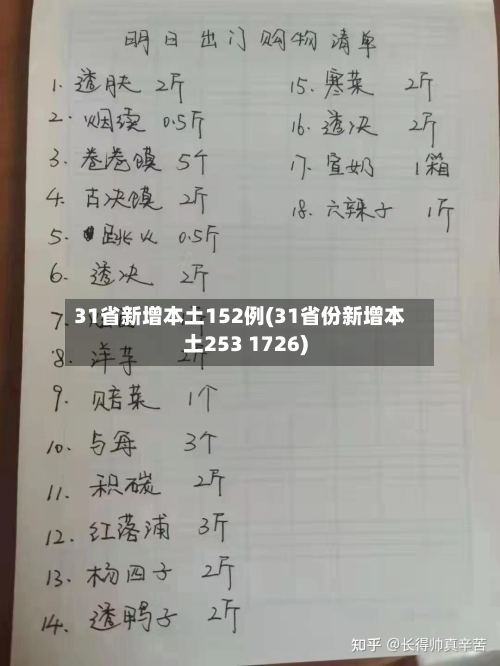 明日出门购物清单
1. 透肤 2斤
2. 烟续 0.5斤
3. 卷卷馍 5个
4. 古决馍 2斤
5. 跳火 0.5斤
6. 透决 2斤
7.
31省新增本土152例(31省份新增本
土253 1726)
8. 洋芋 2斤
9. 赔菜 1个
10. 与每 3个
11. 积碳 2斤
12. 红落浦 3斤
13. 杨四子 2斤
14. 透鸭子 2斤
15. 寒菜 2斤
16. 透决 2斤
17. 宣奶 1箱
18. 六辣子 1斤
知乎 @长得帅真辛苦